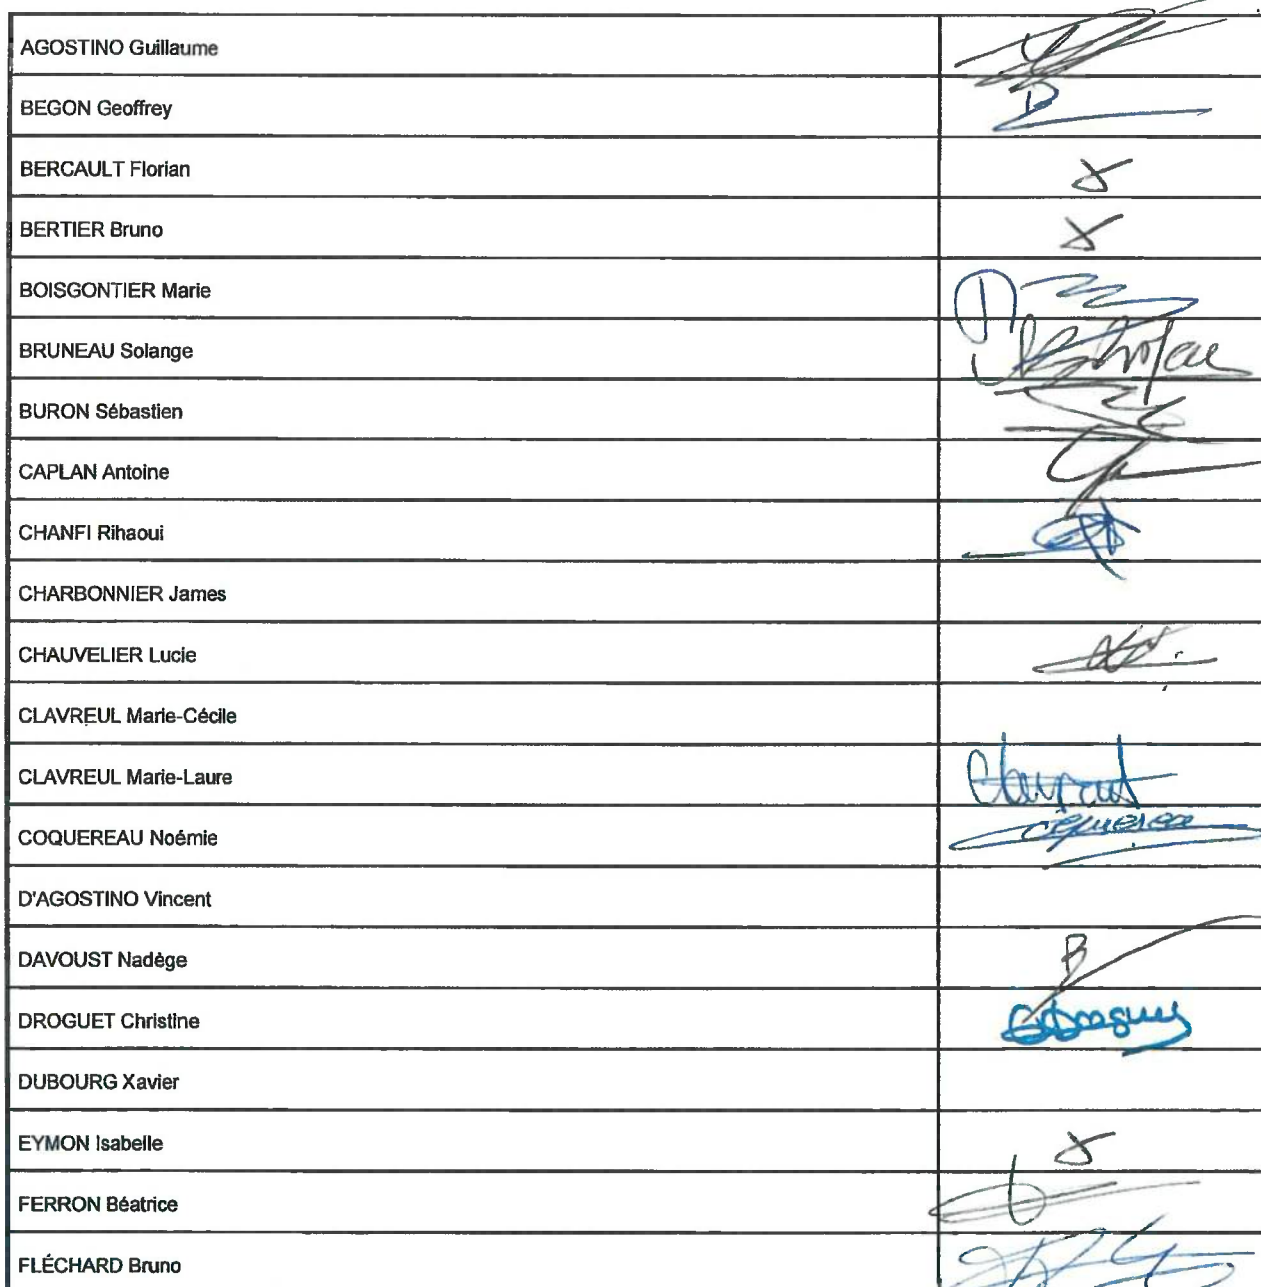 AGOSTINO Guillaume
BEGON Geoffrey
BERCAULT Florian
BERTIER Bruno
BOISGONTIER Marie
BRUNEAU Solange
BURON Sébastien
CAPLAN Antoine
CHANFI Rihaoui
CHARBONNIER James
CHAUVELIER Lucie
CLAVREUL Marie-Cécile
CLAVREUL Marie-Laure
COQUEREAU Noémie
D'AGOSTINO Vincent
DAVOUST Nadège
DROGUET Christine
DUBOURG Xavier
EYMON Isabelle
FERRON Béatrice
FLÉCHARD Bruno